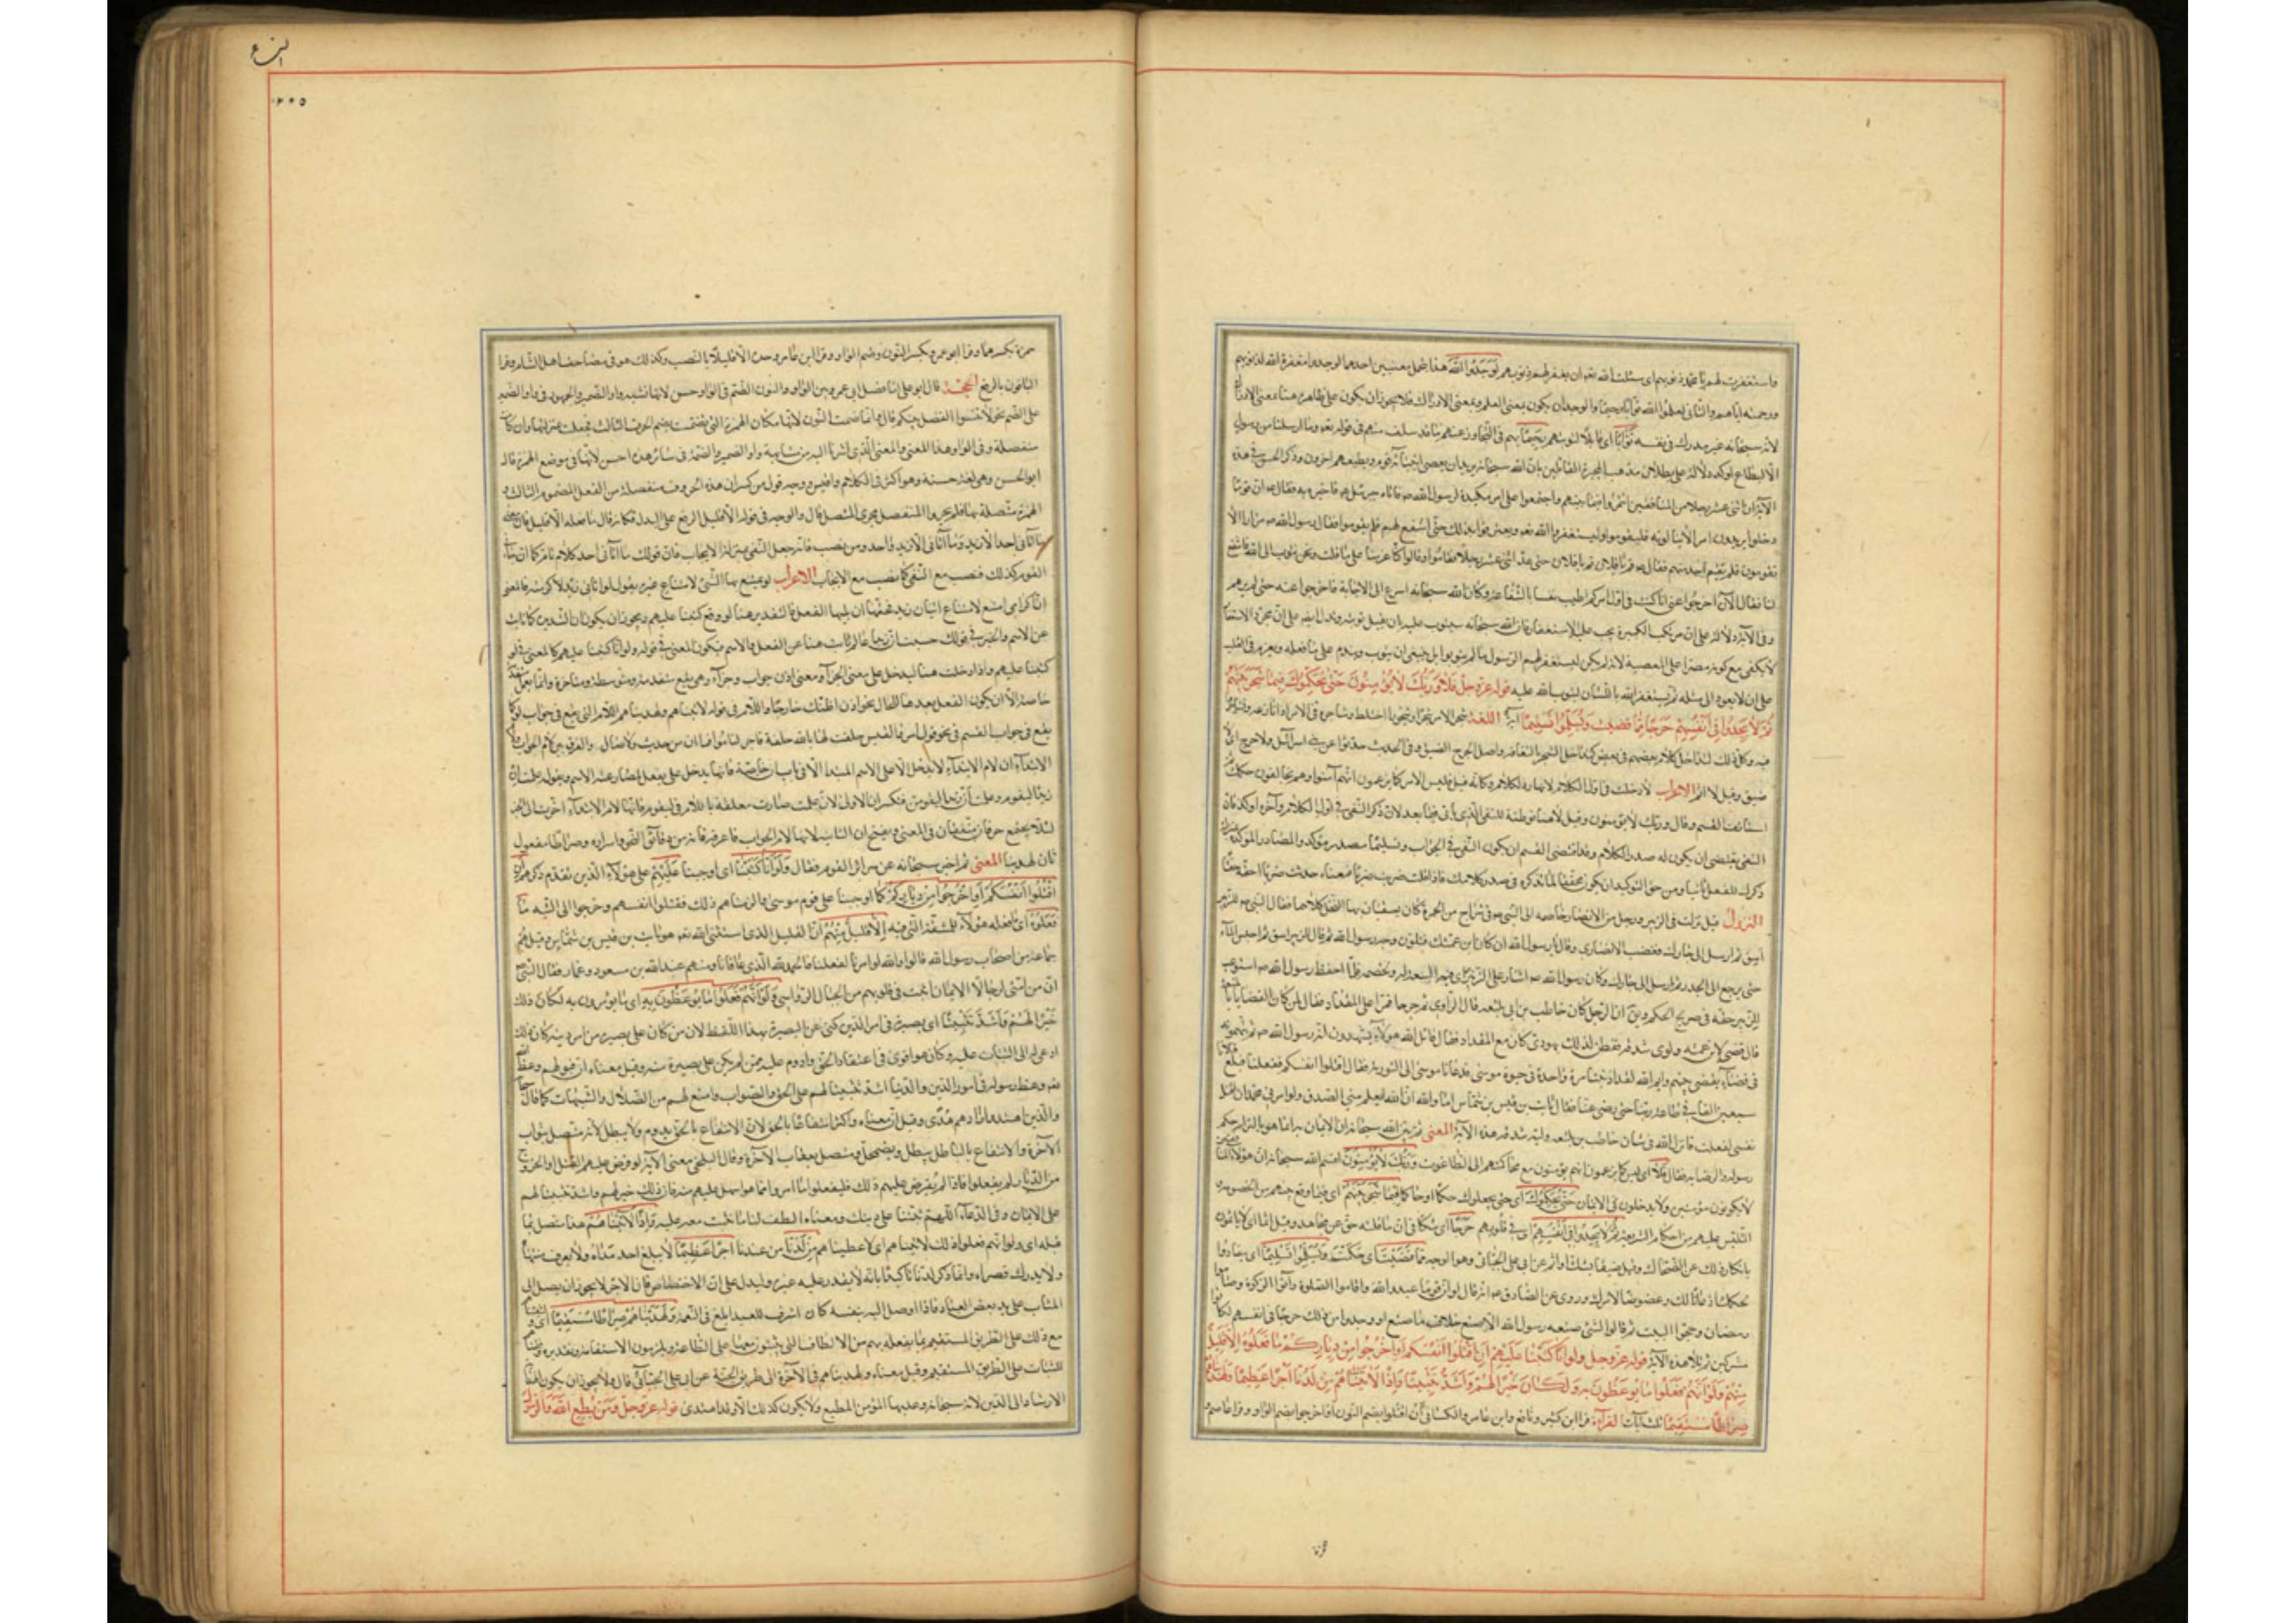 فاستغفرت لهم يا محمد ذنوبهم اى سئلت الله تعه ان يغفر لهم ذنوبهم لوجدوا الله هذا يحتمل معنيين احدهما لوجدوا مغفرة الله لذنوبهم
ورحمته اياهم والثانى لعلموا الله توابا رحيما والوجدان يكون بمعنى العلم وبمعنى الادراك فلا يجوز ان يكون على ظاهره هنا بمعنى الادراك
لانه سبحانه غير مدرك فى نفسه توابا اى قابلا لتوبتهم رحيما بهم فى التجاوز عنهم ما قد سلف منهم فى قوله تعه وما ارسلنا من رسول
الا ليطاع اوكد دلالة على بطلان مذهب المجبرة القائلين بان الله سبحانه يريد ان يعصى انبياءه قوم ويطيعهم اخرون وذكر الحسن فى هذه
الآية ان اثنى عشر رجلا من المنافقين ائتمروا فيما بينهم واجتمعوا على امر مكيدة لرسول الله ص فاتاه جبرئيل فاخبره به فقال ص ان قوما
دخلوا يريدون امرا لا ينالونه فليقوموا وليستغفروا الله تعه وبعترفوا بذلك حتى اشفع لهم فلم يقوموا فقال رسول الله ص مرارا الا
تقومون فلم يقم احد منهم فقال ص قم يا فلان قم يا فلان حتى عد اثنى عشر رجلا فقاموا وقالوا كنا عزمنا على ما قلت ونحن نتوب الى الله فاشفع
لنا فقال الآن اخرجوا عنى انا كنت فى اول امركم اطيب نفسا بالشفاعة وكان الله سبحانه اسرع الى الاجابة فاخرجوا عنه حتى لم يرهم
وفى الآية دلالة على ان مرتكب الكبيرة يجب عليه الاستغفار فان الله سبحانه سيتوب عليه بان يقبل توبته وتدل ايضا على ان مجرد الاستغفار
لا يكفى مع كونه مصرا على المعصية لانه لم يكن ليستغفر لهم الرسول ما لم يتوبوا بل ينبغى ان يتوب ويندم على ما فعله ويعزم فى القلب
على ان لا يعود الى مثله ثم يستغفر الله باللسان ليتوب الله عليه قوله عز وجل فلا وربك لا يؤمنون حتى يحكموك فيما شجر بينهم
ثم لا يجدوا فى انفسهم حرجا مما قضيت ويسلموا تسليما آية اللغة شجر الامر شجرا وشجورا اختلط وشاجره فى الامر اذا نازعه
فيه وكل ذلك لتداخل كلام بعضهم فى بعض كتداخل الشجر بالتفافه واصل الحرج الضيق وفى الحديث حدثوا عن بنى اسرائيل ولا حرج اى لا
ضيق وقيل لا اثم الاعراب لا دخلت فى اول الكلام لانها رد لكلام وكانه قيل فليس الامر كما يزعمون انهم آمنوا وهم يخالفون حكمك ثم
استأنف القسم وقال وربك لا يؤمنون وقيل لا هنا توطئة للنفى الذى يأتى فيما بعد لان ذكر النفى فى اول الكلام وآخره اوكد فان
النفى يقتضى ان يكون له صدر الكلام وقد اقتضى القسم ان يكون النفى فى الجواب وتسليما مصدر مؤكد والمصادر المؤكدة
ذكرك للفعل ثانيا ومن حق التوكيد ان يكون محققا لما تذكره فى صدر كلامك فاذا قلت ضربت ضربا فمعناه حدثت ضربا احقه حقا
النزول قيل نزلت فى الزبير ورجل من الانصار خاصمه الى النبى ص فى شراج من الحرة كان يسقيان بها النخل كلاهما فقال النبى ص للزبير
اسق ثم ارسل الى جارك فغضب الانصارى وقال يا رسول الله ان كان ابن عمتك فتلون وجه رسول الله ثم قال للزبير اسق ثم احبس الماء
حتى يرجع الى الجدر ثم ارسل الى جارك وكان رسول الله ص اشار على الزبير براى فيه السعة له ولخصمه فلما احفظ رسول الله ص استوعب
للزبير حقه فى صريح الحكم ويق ان الرجل كان حاطب بن ابى بلتعة قال الراوى ثم خرجا فمرا على المقداد فقال لمن كان القضاء يا ابا بلتعة
قال قضى لابن عمته ولوى شدقه ففطن لذلك يهودى كان مع المقداد فقال قاتل الله هؤلاء يشهدون انه رسول الله ص ثم يتهمونه
فى قضاء يقضى بينهم وايم الله لقد اذنبنا مرة واحدة فى حيوة موسى فدعانا موسى الى التوبة فقال اقتلوا انفسكم ففعلنا فبلغ قتلانا
سبعين الفا فى طاعة ربنا حتى رضى عنا فقال ثابت بن قيس بن شماس اما والله ان الله ليعلم منى الصدق ولو امرنى محمد ان اقتل
نفسى لفعلت فانزل الله فى شان حاطب بن بلتعة وليه شدقه هذه الآية المعنى ثم بين الله سبحانه ان الايمان به انما هو بالتزام حكم
رسوله والرضا به فقال فلا اى ليس كما يزعمون انهم يؤمنون مع محاكمتهم الى الطاغوت وربك لا يؤمنون اقسم الله سبحانه ان هؤلاء المنافقين
لا يكونون مؤمنين ولا يدخلون فى الايمان حتى يحكموك اى حتى يجعلوك حكما او حاكما فيما شجر بينهم اى فيما وقع بينهم من الخصومة
التبس عليهم من احكام الشريعة ثم لا يجدوا فى انفسهم اى فى قلوبهم حرجا اى شكا فى ان ما قلته حق عن مجاهد وقيل اثما اى لا ياثمون
بانكار ذلك عن الضحاك وقيل ضيقا بشك او اثم عن ابى على الجبائى وهو الوجه مما قضيت اى حكمت ويسلموا تسليما اى ينقادوا
لحكمك اذعانا لك وخضوعا لامرك وروى عن الصادق ص انه قال لو ان قوما عبدوا الله واقاموا الصلوة وآتوا الزكوة وصاموا
رمضان وحجوا البيت ثم قالوا لشئ صنعه رسول الله الا صنع خلاف ما صنع او وجدوا من ذلك حرجا فى انفسهم لكانوا
مشركين ثم تلا هذه الآية قوله عز وجل ولو انا كتبنا عليهم ان اقتلوا انفسكم او اخرجوا من دياركم ما فعلوه الا قليل
منهم ولو انهم فعلوا ما يوعظون به لكان خيرا لهم واشد تثبيتا واذا لآتيناهم من لدنا اجرا عظيما ولهديناهم
صراطا مستقيما ثلث آيات القراءة قرا ابن كثير ونافع وابن عامر والكسائى ان اقتلوا بضم النون او اخرجوا بضم الواو وقرا عاصم و
النساء
٢٠٥
حمزة بكسرهما وقرا ابو عمرو بكسر النون وضم الواو وقرا ابن عامر وحده الا قليلا بالنصب وكذلك هو فى مصاحف اهل الشام وقرا
الباقون بالرفع الحجة قال ابو على انما فصل ابى عمرو بين الواو والنون الضم فى الواو حسن لانها تشبه واو الضمير والجمهور فى واو الضمير
على الضم نحو لا تنسوا الفضل بينكم قال وانما ضمت النون لانها مكان الهمزة التى ضمت بضم الحرف الثالث فجعلت بمنزلتها وان كانت
منفصلة وفى الواو هذا المعنى والمعنى الذى اشرنا اليه من مشابهة واو الضمير والضمة فى سائر هذه احسن لانها فى موضع الهمزة قال
ابو الحسن وهى لغة حسنة وهو اكثر فى الكلام واقيس ووجه قول من كسر ان هذه الحروف منفصلة من الفعل المضموم الثالث و
الهمزة متصلة بها فلم يجروا المنفصل مجرى المتصل قال والوجه فى قوله الا قليل الرفع على البدل فكانه قال ما فعله الا قليل فان معنى
ما اتانى احد الا زيد وما اتانى الا زيد واحد ومن نصب فانه جعل النفى بمنزلة الايجاب فان قولك ما اتانى احد كلام تام كما ان جاءنى
القوم كذلك فنصب مع النفى كما نصب مع الايجاب الاعراب لو يمتنع بها الشئ لامتناع غيره يقول لو اتانى زيد لاكرمته فالمعنى
ان اكرامى امتنع لامتناع اتيان زيد فحقها ان يليها الفعل فالتقدير هنا لو وقع كتبنا عليهم ويجوز ان يكون ان الشديدة كما نابت
عن الاسم والخبر فى قولك حسبت ان زيدا عالم نابت هنا عن الفعل والاسم فيكون المعنى فى قوله ولو انا كتبنا عليهم كالمعنى فى لو
كتبنا عليهم واذا دخلت هنا ليدل على معنى الجزاء ومعنى اذن جواب وجزاء وهى يقع متقدمة ومتوسطة ومتاخرة وانما تعمل متقدمة
خاصة الا ان يكون الفعل بعدها للحال نحو اذن اظنك خارجا واللام فى قوله لآتيناهم ولهديناهم اللام التى يقع فى جواب لو كما
يقع فى جواب القسم فى نحو قول امرئ القيس حلفت لها بالله حلفة فاجر لناموا فما ان من حديث ولا صال والفرق بين لام الجواب ولام
الابتداء ان لام الابتداء لا يدخل الا على الاسم المبتدا الا فى باب ان خاصة فانها يدخل على يفعل لمضارعته الاسم ويقوله علمت ان
زيدا ليقوم وعلمت ان زيدا ليقومن فتكسر ان الاولى لان علمت صارت معلقة باللام فى ليقوم فانها لام الابتداء اخرت الى الخبر
لئلا يجتمع حرفان متفقان فى المعنى ويفتح ان الثانية لانها لام الجواب فاعرفه فانه من دقائق النحو واسراره وصراطا مفعول
ثان لهدينا المعنى ثم اخبر سبحانه عن سرائر القوم فقال ولو انا كتبنا اى اوجبنا عليهم على هؤلاء الذين تقدم ذكرهم ان
اقتلوا انفسكم او اخرجوا من دياركم كما اوجبنا على قوم موسى والزمناهم ذلك فقتلوا انفسهم وخرجوا الى التيه ما
فعلوه اى ما فعله هؤلاء للمشقة التى فيه الا قليل منهم ان القليل الذى استثنى الله تعه هو ثابت بن قيس بن شماس وقيل هم
جماعة من اصحاب رسول الله قالوا والله لو امرنا لفعلنا فالحمد لله الذى عافانا ومنهم عبد الله بن مسعود وعمار فقال النبى ص
ان من امتى لرجالا الايمان اثبت فى قلوبهم من الجبال الرواسى ولو انهم فعلوا ما يوعظون به اى ما يؤمرون به لكان ذلك
خيرا لهم واشد تثبيتا اى بصيرة فى امر الدين كنى عن البصيرة بهذا اللفظ لان من كان على بصيرة من امر دينه كان ذلك
ادعى له الى الثبات عليه وكان هو اقوى فى اعتقاد الحق وادوم عليه ممن لم يكن على بصيرة منه وقيل معناه ان قبولهم وعظ الله
تعه وعظ رسوله فى امور الدين والدنيا اشد تثبيتا لهم على الحق والصواب وامنع لهم من الضلال والشبهات كما قال
والذين اهتدوا زادهم هدى وقيل ان معناه واكثر انتفاعا بالحق لان الانتفاع بالحق يدوم ولا يبطل لانه يتصل بثواب
الآخرة والانتفاع بالباطل يبطل ويضمحل ويتصل بعقاب الآخرة وقال البلخى معنى الآية لو فرض عليهم القتل او الخروج
من الديار لم يفعلوا فاذا لم يفرض عليهم ذلك فليفعلوا ما امروا بما هو اسهل عليهم منه فان ذلك خير لهم واشد تثبيتا لهم
على الايمان وفى الدعاء اللهم ثبتنا على دينك ومعناه الطف لنا ما نثبت معه عليه واذا لآتيناهم هذا متصل بما
قبله اى ولو انهم فعلوا ذلك لآتيناهم اى لاعطيناهم من لدنا من عندنا اجرا عظيما لا يبلغ احد مداه ولا يعرف منتهاه
ولا يدرك قصراه وانما ذكر لدنا تاكيدا بانه لا يقدر عليه غيره وليدل على الاختصاص فان الاجر لا يجوز ان يصل الى
المثاب على يد بعض العباد فاذا اوصل اليه بنفسه كان اشرف للعبد ابلغ فى النعمة ولهديناهم صراطا مستقيما اى
مع ذلك على الطريق المستقيم بما يفعله بهم من الالطاف التى يثبتون معها على الطاعة ويلزمون الاستقامة وتقديره
للثبات على الطريق المستقيم وقيل معناه ولهديناهم فى الآخرة الى طريق الجنة عن ابى على الجبائى قال ولا يجوز ان يكون
الارشاد الى الدين لانه سبحانه وعد بها المؤمن المطيع ولا يكون كذلك الا وقد اهتدى قوله عز وجل ومن يطع الله والرسول